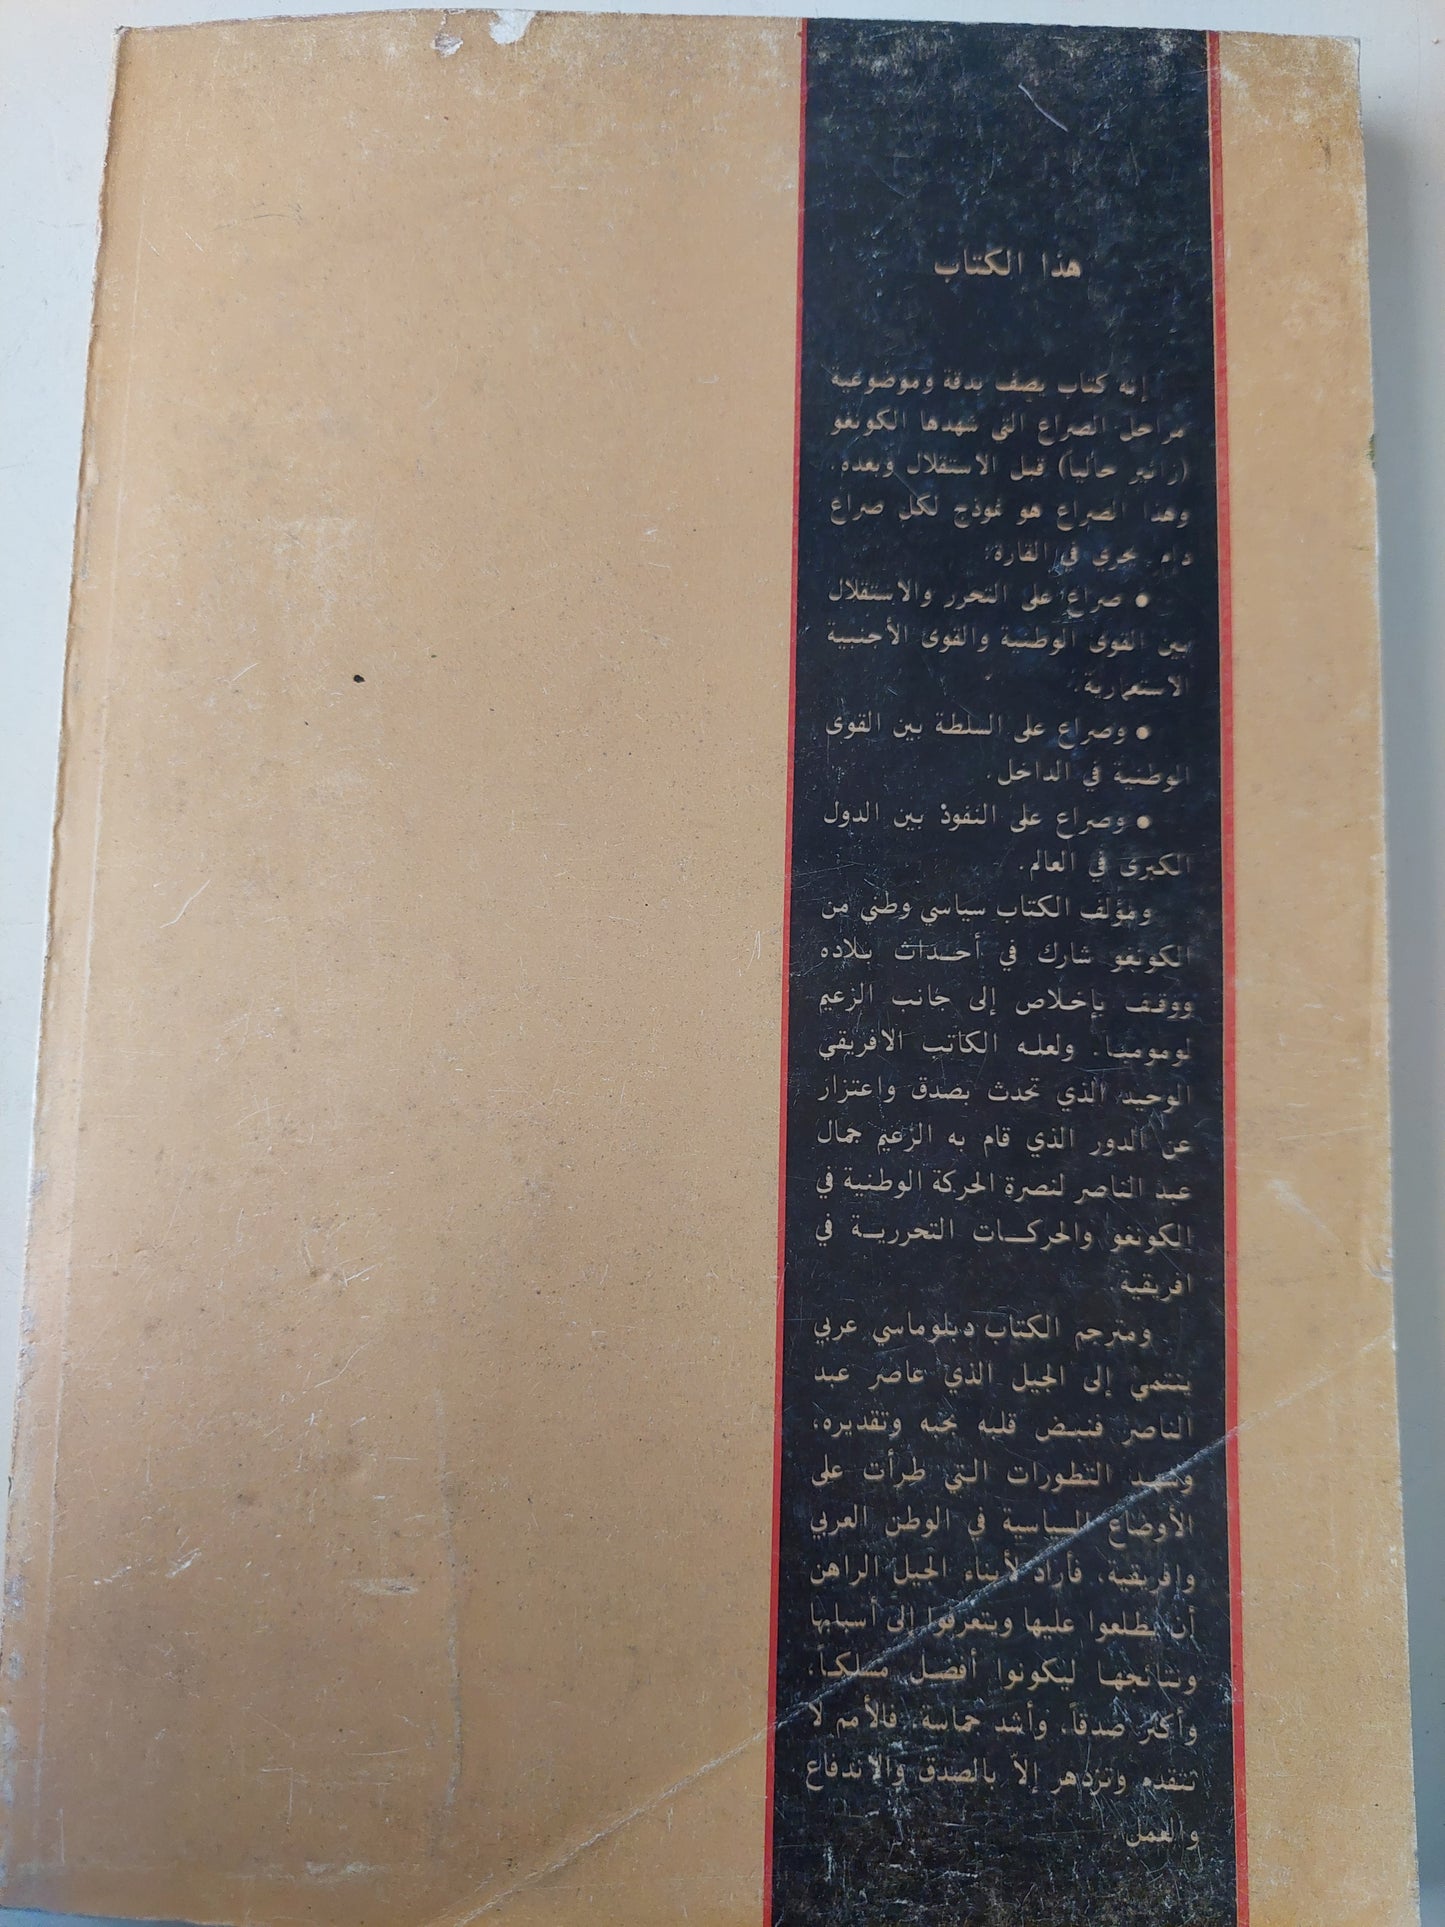 هذا الكتاب
إنه كتاب يصف بدقة وموضوعية
مراحل الصراع التي شهدها الكونغو
(زائير حالياً) قبل الاستقلال وبعده.
وهذا الصراع هو نموذج لكل صراع
دام يجري في القارة:
• صراع على التحرر والاستقلال
بين القوى الوطنية والقوى الأجنبية
الاستعمارية.
• وصراع على السلطة بين القوى
الوطنية في الداخل.
• وصراع على النفوذ بين الدول
الكبرى في العالم.
ومؤلف الكتاب سياسي وطني من
الكونغو شارك في أحداث بلاده
ووقف بإخلاص إلى جانب الزعيم
لومومبا. ولعله الكاتب الافريقي
الوحيد الذي تحدث بصدق واعتزاز
عن الدور الذي قام به الزعيم جمال
عبد الناصر لنصرة الحركة الوطنية في
الكونغو والحركات التحررية في
افريقية.
ومترجم الكتاب دبلوماسي عربي
ينتمي إلى الجيل الذي عاصر عبد
الناصر فنبض قلبه بحبه وتقديره،
وشهد التطورات التي طرأت على
الأوضاع السياسية في الوطن العربي
وافريقية، فأراد لأبناء الجيل الراهن
أن يطلعوا عليها ويتعرفوا إلى أسبابها
ونتائجها ليكونوا أفضل مسلكاً،
وأكثر صدقاً، وأشد حماسة، فالأمم لا
تتقدم وتزدهر إلاّ بالصدق والاندفاع
والعمل.